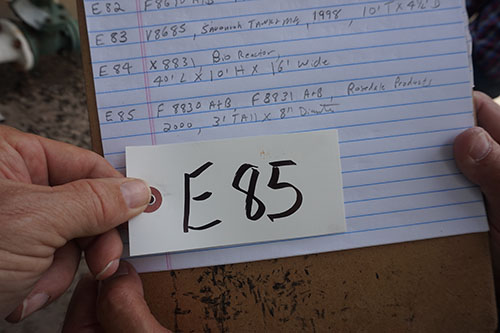 E82
E83 V8685, Savannah Tank & Mfg, 1998, 10' T X 4½' D
E84 X8831, Bio Reactor
40' L X 10' H X 16' Wide
E85 F8830 A+B, F8831 A+B, Rosedale Products
2000, 3' TAll X 8" Diameter
E 85